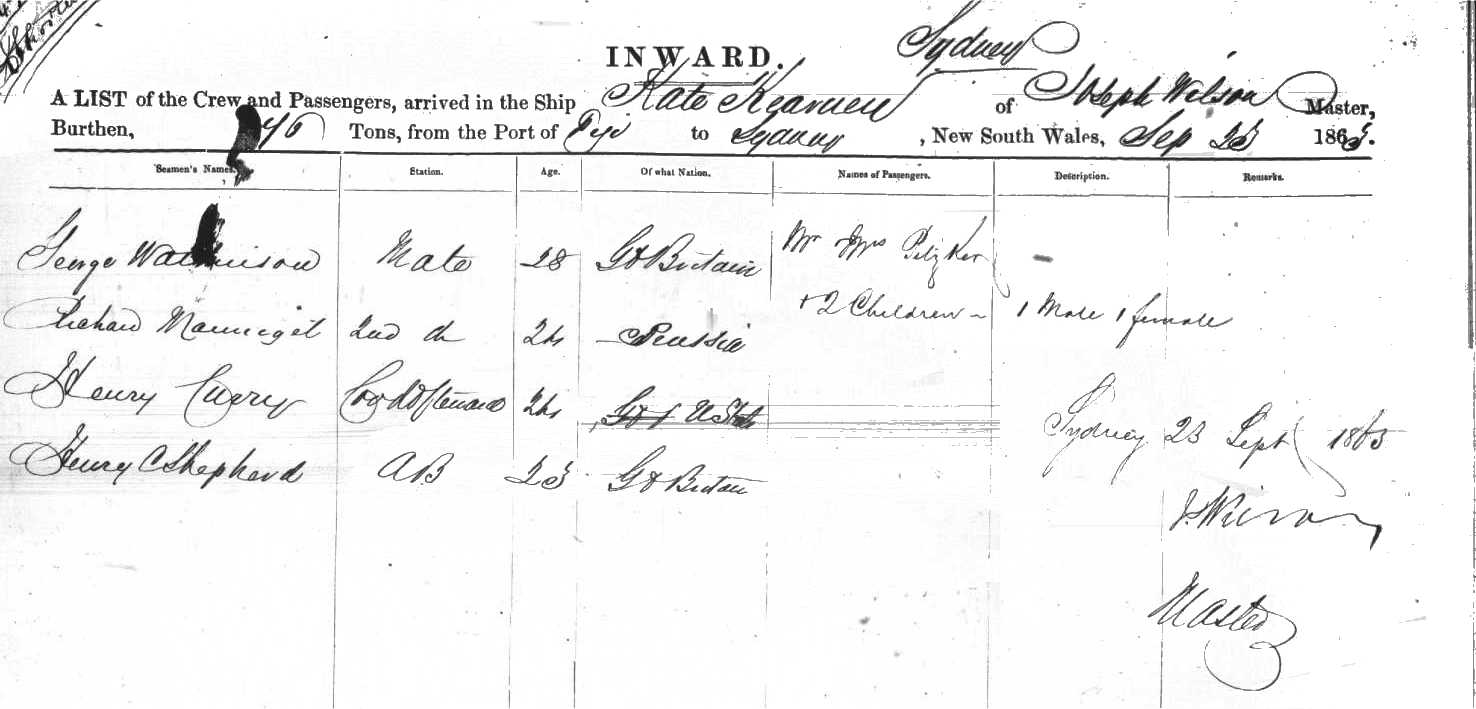 INWARD. Sydney
A LIST of the Crew and Passengers, arrived in the Ship Kate Kearney of Joseph Wilson Master,
Burthen, Tons, from the Port of Fiji to Sydney, New South Wales, Sep 23 1863.
Seamen's Names. Station. Age. Of what Nation. Names of Passengers. Description. Remarks.
George Mate 28 Gt Britain Mr & Mrs
Richard 2nd do 24 + 2 Children - 1 Male 1 female
Henry Curry Cook & Steward 24
Sydney 23 Sept 1863
Henry C Shepherd AB 23 Gt Britain
J. Wilson
Master